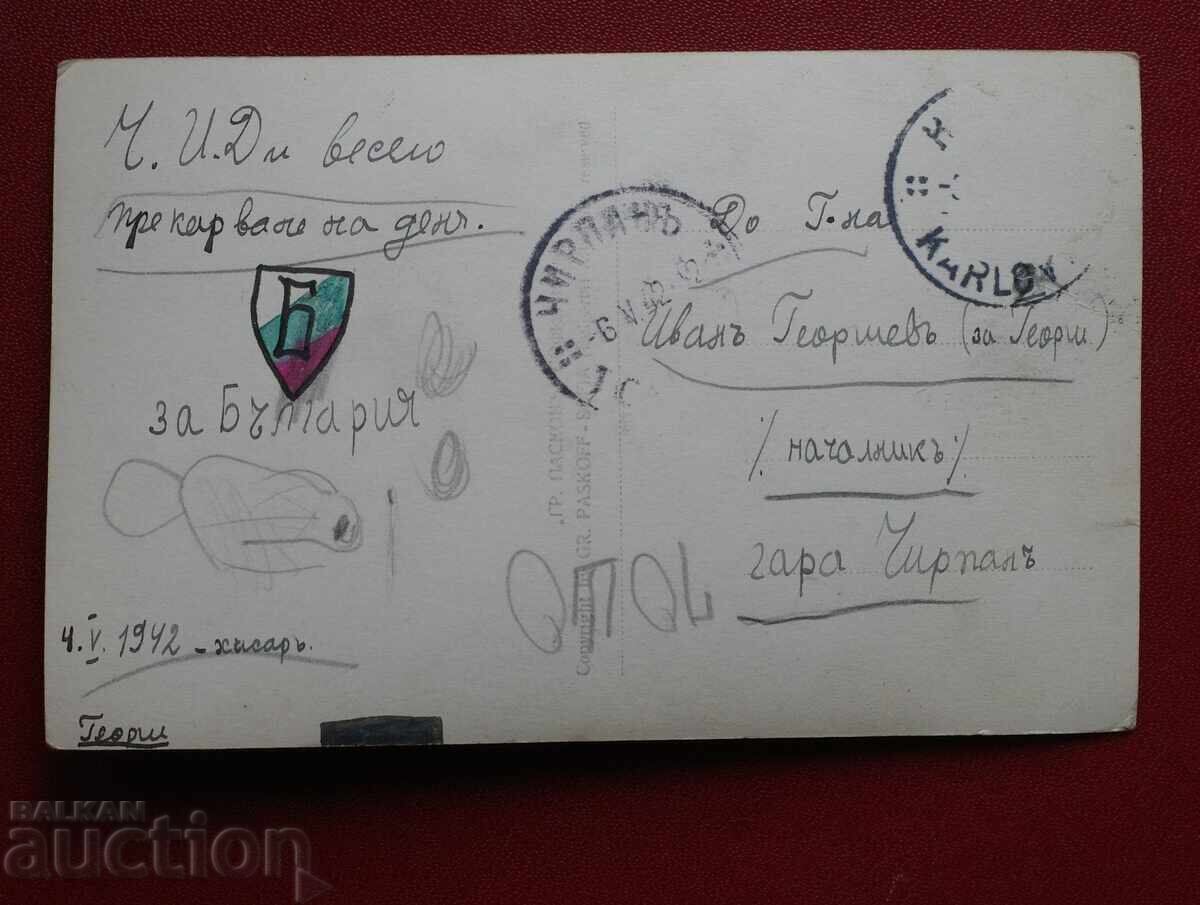 Ч. И. Д и весело
прекарване на денъ.
Б
за България
4. V. 1942 - хисаръ.
Георги
ЧИРПАНЪ
-6 V 42
KARLOV
До Г-на
Иванъ Георгиевъ (за Георги)
/началникъ/
гара Чирпанъ
ГР. ПАСКОВ
Copyright GR. PASKOFF -
reserved
BALKAN
auction